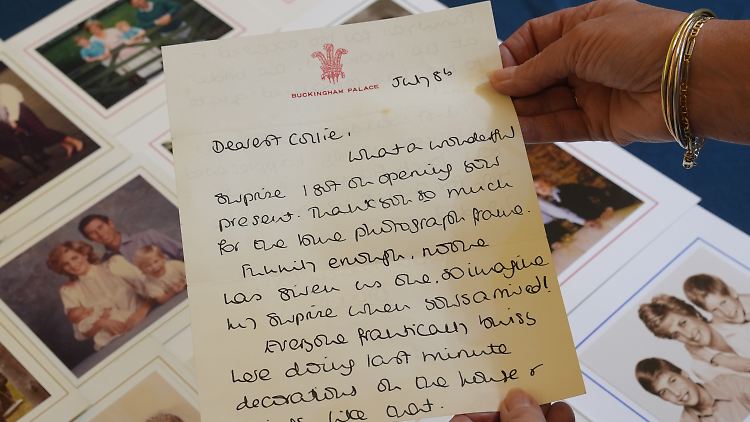 BUCKINGHAM PALACE
July 86
Dearest Collie,
What a wonderful
surprise I got on opening your
present. Thank you so much
for the lovely photograph frame.
Funnily enough, no one
has given us one, so imagine
my surprise when yours arrived!
Everyone frantically busy
here doing last minute
decorations on the house &
like that.